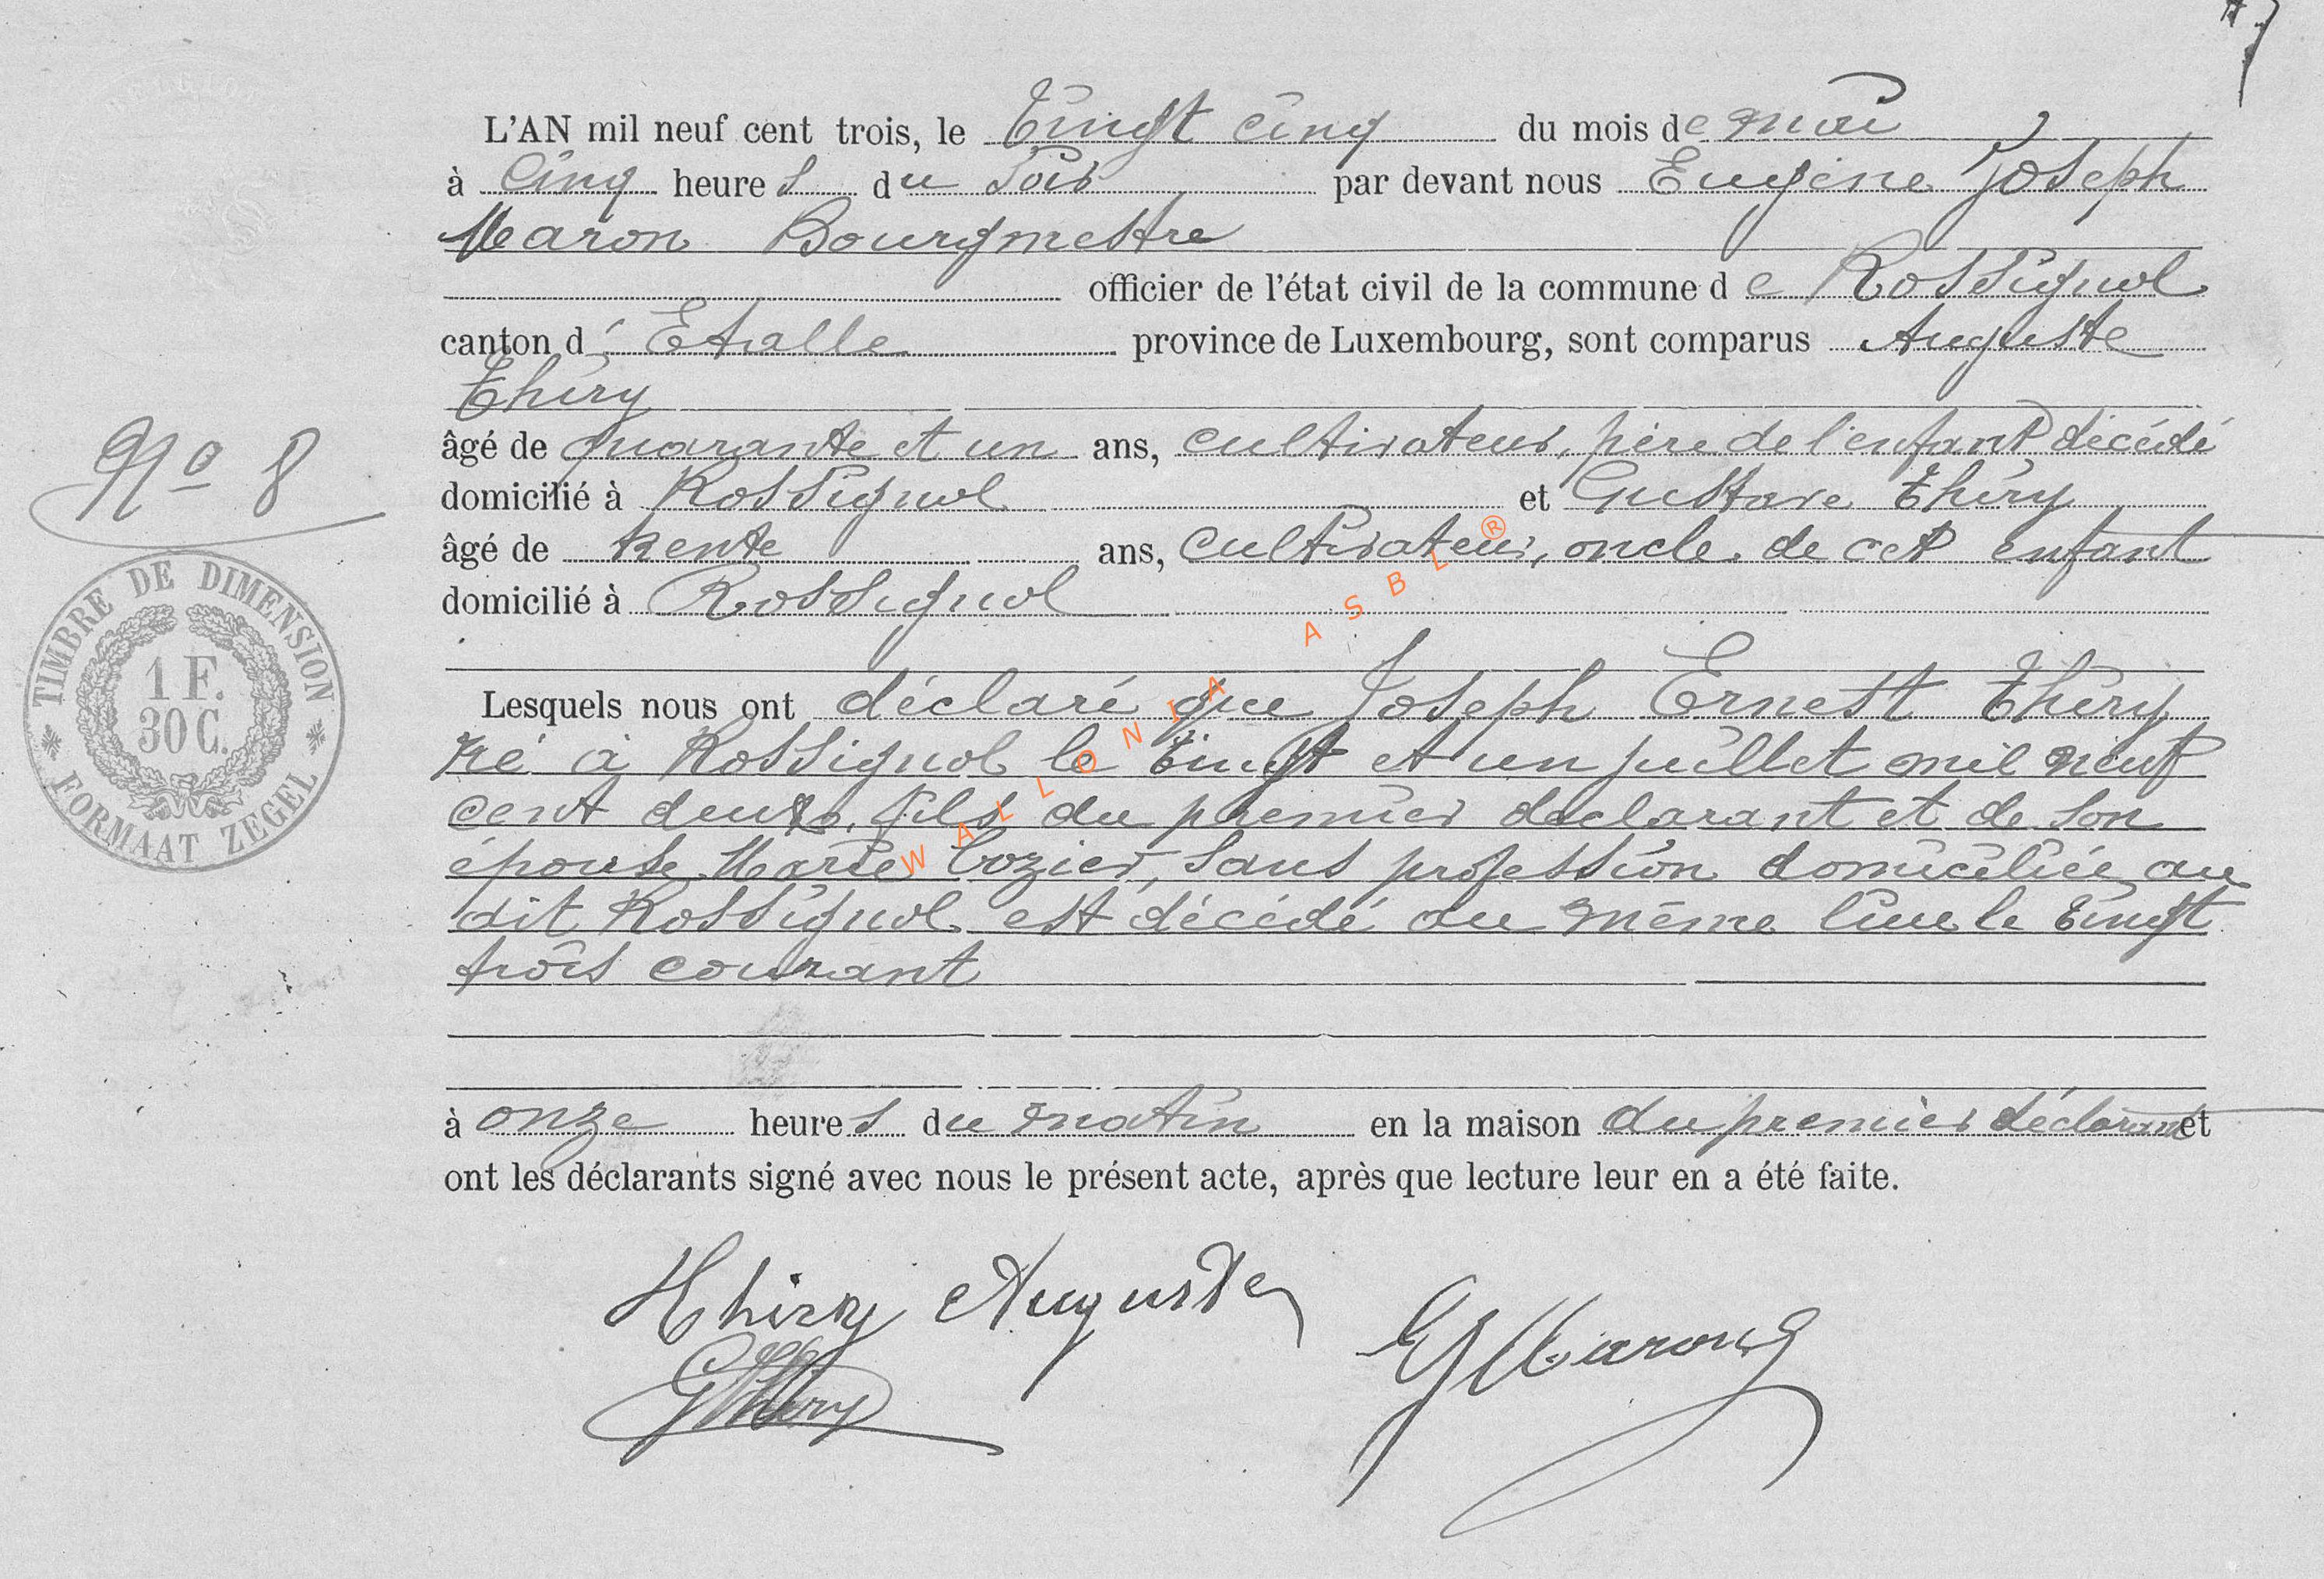 L'AN mil neuf cent trois, le vingt cinq du mois de mai
à cinq heures du soir par devant nous Eugène Joseph
Maron Bourgmestre
officier de l'état civil de la commune de Rossignol
canton d'Etalle province de Luxembourg, sont comparus Auguste
Thiry
âgé de quarante et un ans, cultivateur, père de l'enfant décédé
domicilié à Rossignol et Gustave Thiry
N° 8
âgé de trente ans, cultivateur, oncle de cet enfant
domicilié à Rossignol
TIMBRE DE DIMENSION
1 F.
30 C.
FORMAAT ZEGEL
WALLONIA ASBL ®
Lesquels nous ont déclaré que Joseph Ernest Thiry
né à Rossignol le vingt et un juillet mil neuf
cent deux, fils du premier déclarant et de son
épouse Marie Cozier, sans profession domiciliée au
dit Rossignol est décédé au même lieu le vingt
trois courant
à onze heures du matin en la maison du premier déclarant et
ont les déclarants signé avec nous le présent acte, après que lecture leur en a été faite.
Thiry Auguste
EJMaron
GThiry